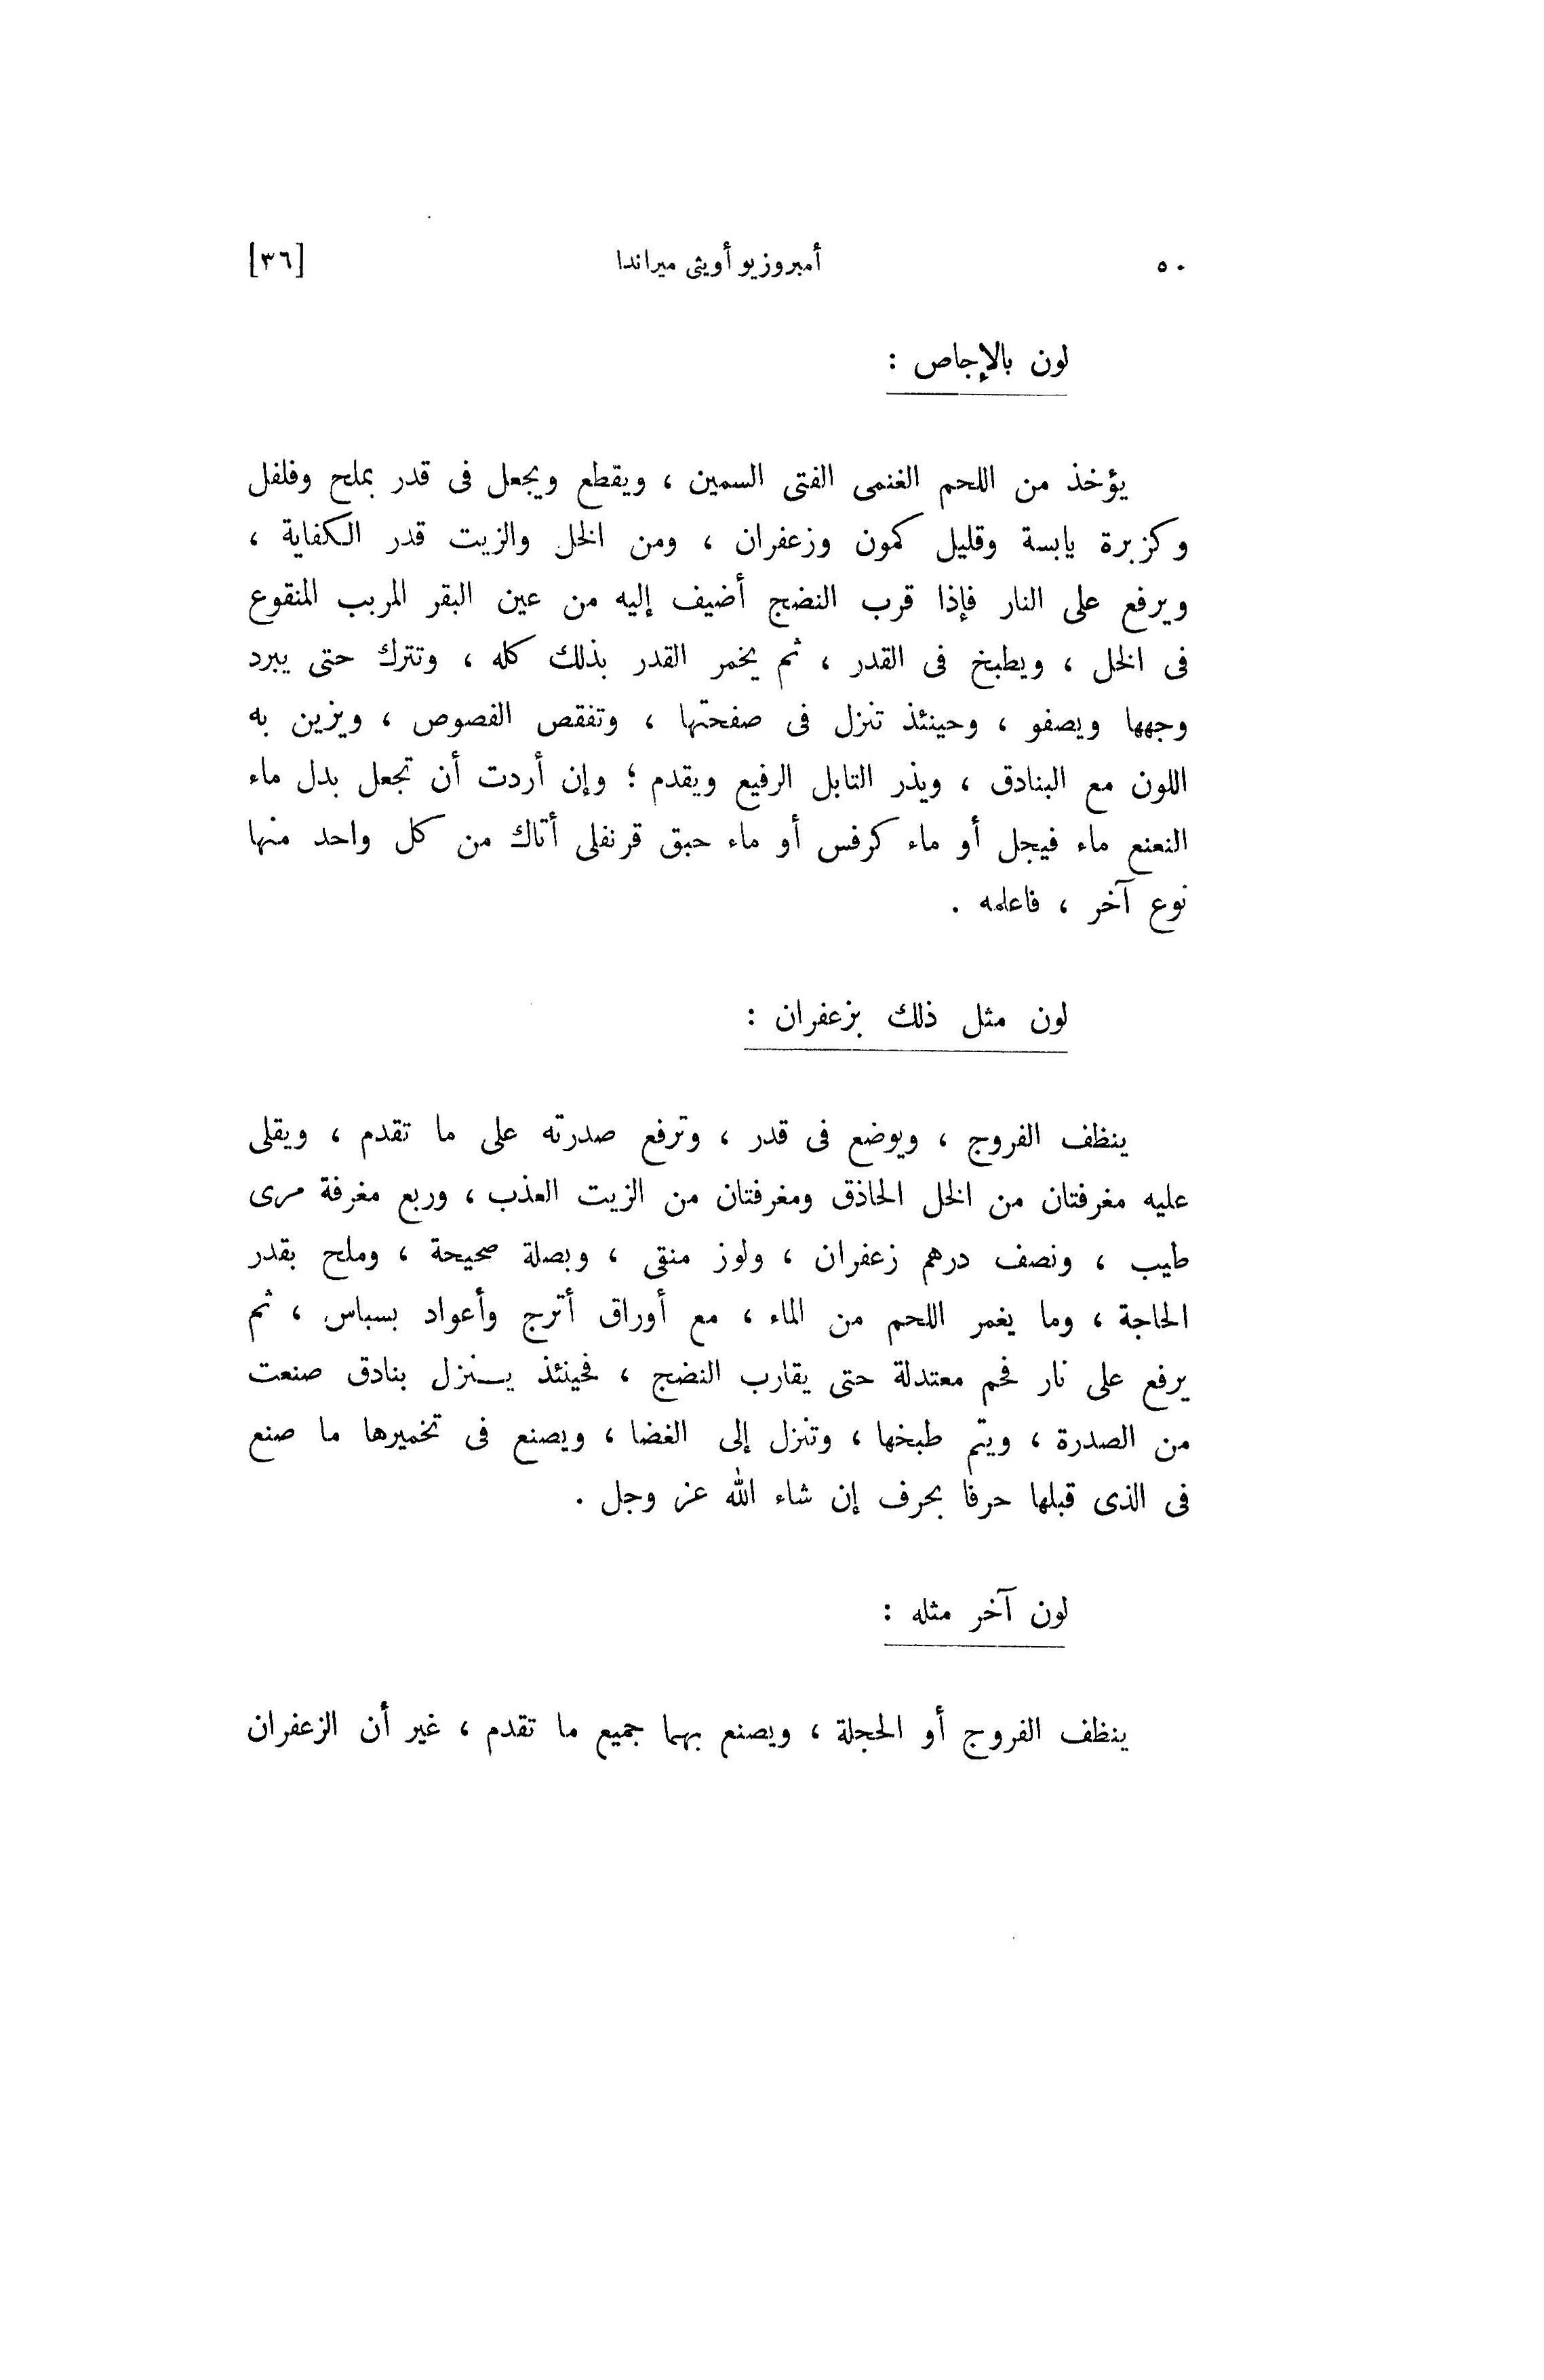 ٥٠ أمبروزيو أويثى ميراندا [٣٦]
لون بالإجاص :
يؤخذ من اللحم الغنمى الفتى السمين ، ويقطع ويجعل فى قدر بملح وفلفل
وكزبرة يابسة وقليل كمون وزعفران ، ومن الخل والزيت قدر الكفاية ،
ويرفع على النار فإذا قرب النضج أضيف إليه من عين البقر المربب المنقوع
فى الخل ، ويطبخ فى القدر ، ثم يخمر القدر بذلك كله ، وتترك حتى يبرد
وجهها ويصفو ، وحينئذ تنزل فى صفحتها ، وتفقص الفصوص ، ويزين به
اللون مع البنادق ، ويذر التابل الرفيع ويقدم ؛ وإن أردت أن تجعل بدل ماء
النعنع ماء فيجل أو ماء كرفس أو ماء حبق قرنفلى أتاك من كل واحد منها
نوع آخر ، فاعلمه .
لون مثل ذلك بزعفران :
ينظف الفروج ، ويوضع فى قدر ، وترفع صدرته على ما تقدم ، ويقلى
عليه مغرفتان من الخل الحاذق ومغرفتان من الزيت العذب ، وربع مغرفة مرى
طيب ، ونصف درهم زعفران ، ولوز منقى ، وبصلة صحيحة ، وملح بقدر
الحاجة ، وما يغمر اللحم من الماء ، مع أوراق أترج وأعواد بسباس ، ثم
يرفع على نار فحم معتدلة حتى يقارب النضج ، فحينئذ يـنزل بنادق صنعت
من الصدرة ، ويتم طبخها ، وتنزل إلى الغضا ، ويصنع فى تخميرها ما صنع
فى الذى قبلها حرفا بحرف إن شاء الله عز وجل .
لون آخر مثله :
ينظف الفروج أو الحجلة ، ويصنع بهما جميع ما تقدم ، غير أن الزعفران